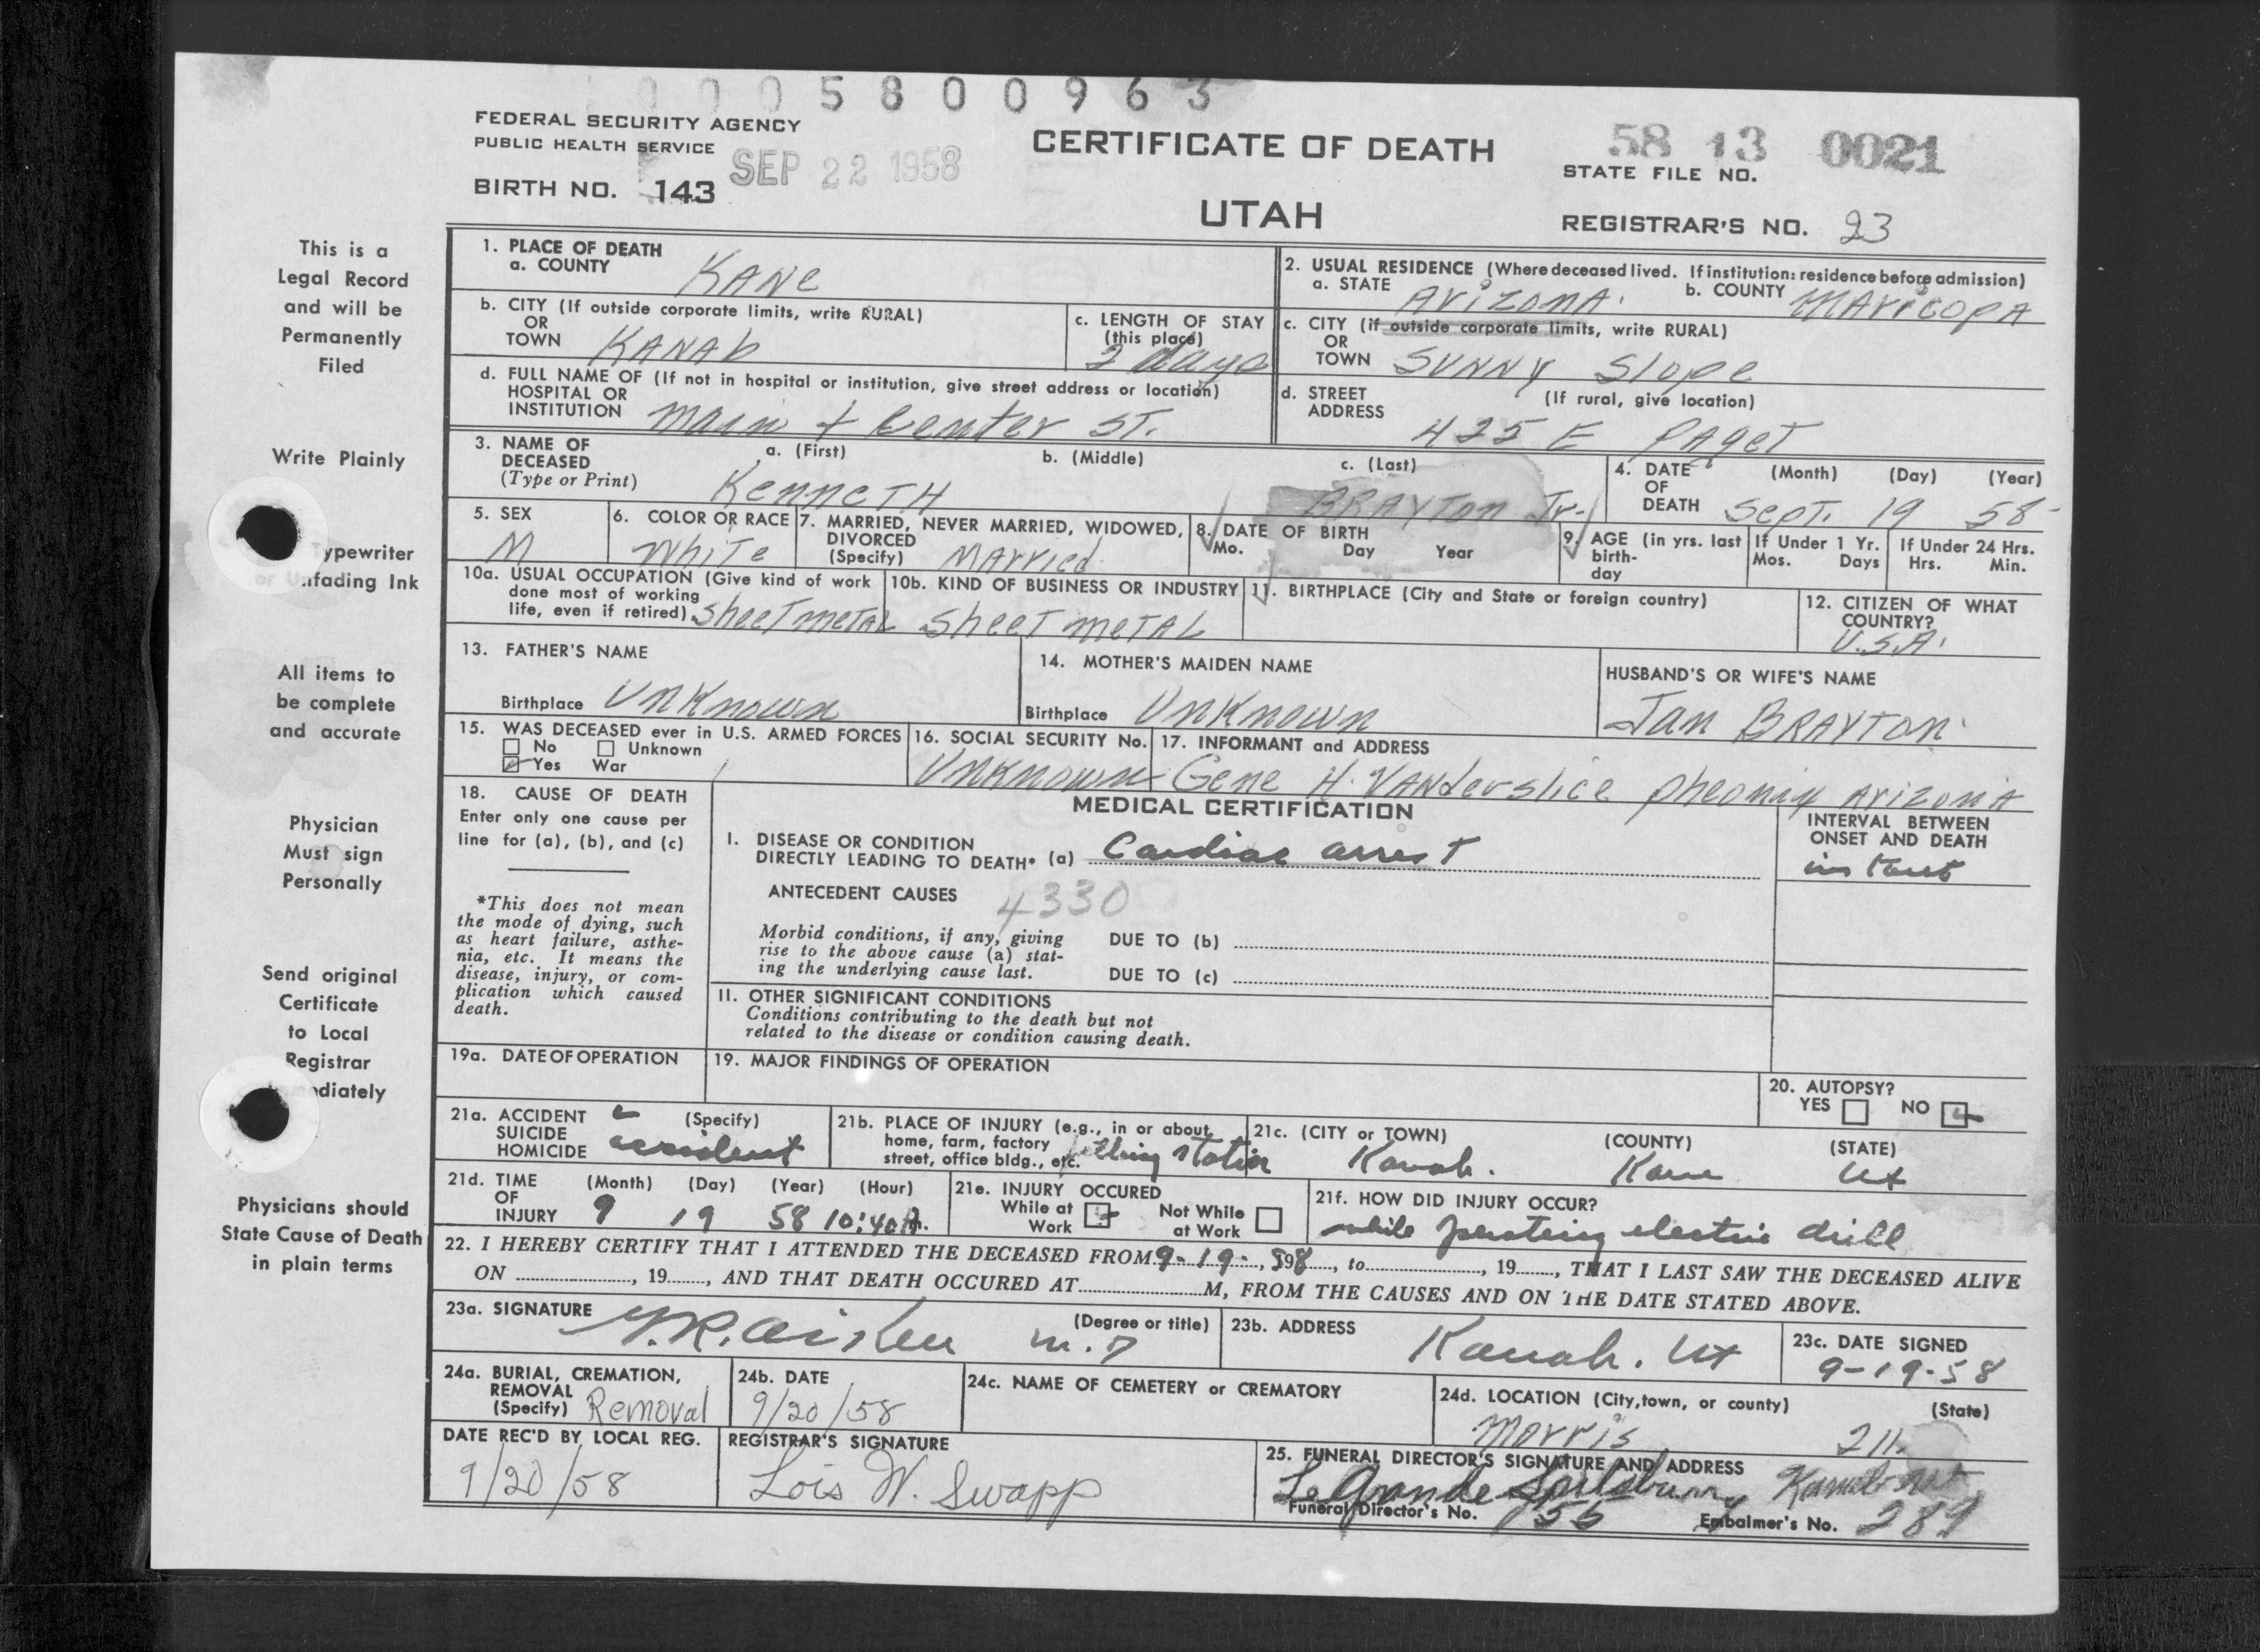 0005800963
FEDERAL SECURITY AGENCY
PUBLIC HEALTH SERVICE
SEP 22 1958
BIRTH NO. 143
CERTIFICATE OF DEATH
UTAH
58 13 0021
STATE FILE NO.
REGISTRAR'S NO. 23
This is a
Legal Record
and will be
Permanently
Filed
Write Plainly
ypewriter
or Unfading Ink
All items to
be complete
and accurate
Physician
Must sign
Personally
Send original
Certificate
to Local
Registrar
ediately
Physicians should
State Cause of Death
in plain terms
1. PLACE OF DEATH
a. COUNTY KANE
2. USUAL RESIDENCE (Where deceased lived. If institution: residence before admission)
a. STATE ARIZONA. b. COUNTY MARICOPA
b. CITY (If outside corporate limits, write RURAL)
OR
TOWN KANAb
c. LENGTH OF STAY
(this place)
2 days
c. CITY (if outside corporate limits, write RURAL)
OR
TOWN SUNNY Slope
d. FULL NAME OF (If not in hospital or institution, give street address or location)
HOSPITAL OR
INSTITUTION Main + Center ST.
d. STREET (If rural, give location)
ADDRESS 425 E PAgeT
3. NAME OF
DECEASED
(Type or Print)
a. (First) b. (Middle) c. (Last)
KenneTH BRAYTON Jr.
4. DATE (Month) (Day) (Year)
OF
DEATH SepT. 19 58
5. SEX
M
6. COLOR OR RACE
WhiTe
7. MARRIED, NEVER MARRIED, WIDOWED,
DIVORCED
(Specify) MArried
8. DATE OF BIRTH
Mo. Day Year
9. AGE (in yrs. last
birth-
day
If Under 1 Yr.
Mos. Days
If Under 24 Hrs.
Hrs. Min.
10a. USUAL OCCUPATION (Give kind of work
done most of working
life, even if retired) SheeT meTAL
10b. KIND OF BUSINESS OR INDUSTRY
SheeT meTAL
11. BIRTHPLACE (City and State or foreign country)
12. CITIZEN OF WHAT
COUNTRY?
U.S.A.
13. FATHER'S NAME
Birthplace UnKnown
14. MOTHER'S MAIDEN NAME
Birthplace UnKnown
HUSBAND'S OR WIFE'S NAME
Jan BRAYTON
15. WAS DECEASED ever in U.S. ARMED FORCES
No Unknown
Yes War
16. SOCIAL SECURITY No.
UnKnown
17. INFORMANT and ADDRESS
Gene H. VANderslice pheonix ArizonA
18. CAUSE OF DEATH
Enter only one cause per
line for (a), (b), and (c)
*This does not mean
the mode of dying, such
as heart failure, asthe-
nia, etc. It means the
disease, injury, or com-
plication which caused
death.
MEDICAL CERTIFICATION
I. DISEASE OR CONDITION
DIRECTLY LEADING TO DEATH* (a) Cardiac arrest
INTERVAL BETWEEN
ONSET AND DEATH
instant
ANTECEDENT CAUSES
4330
Morbid conditions, if any, giving
rise to the above cause (a) stat-
ing the underlying cause last.
DUE TO (b)
DUE TO (c)
II. OTHER SIGNIFICANT CONDITIONS
Conditions contributing to the death but not
related to the disease or condition causing death.
19a. DATE OF OPERATION
19. MAJOR FINDINGS OF OPERATION
20. AUTOPSY?
YES NO
21a. ACCIDENT (Specify)
SUICIDE
HOMICIDE accident
21b. PLACE OF INJURY (e.g., in or about
home, farm, factory
street, office bldg., etc. filling station
21c. (CITY or TOWN) (COUNTY) (STATE)
Kanab. Kane Ut
21d. TIME (Month) (Day) (Year) (Hour)
OF
INJURY 9 19 58 10:40A.
21e. INJURY OCCURED
While at Work Not While at Work
21f. HOW DID INJURY OCCUR?
while operating electric drill
22. I HEREBY CERTIFY THAT I ATTENDED THE DECEASED FROM 9-19-, 1958, to , 19 , THAT I LAST SAW THE DECEASED ALIVE
ON , 19 , AND THAT DEATH OCCURED AT M, FROM THE CAUSES AND ON THE DATE STATED ABOVE.
23a. SIGNATURE (Degree or title)
Aiken M.D
23b. ADDRESS
Kanab. Ut
23c. DATE SIGNED
9-19-58
24a. BURIAL, CREMATION,
REMOVAL
(Specify) Removal
24b. DATE
9/20/58
24c. NAME OF CEMETERY or CREMATORY
24d. LOCATION (City, town, or county) (State)
Morris Ill.
DATE REC'D BY LOCAL REG.
9/20/58
REGISTRAR'S SIGNATURE
Lois W. Swapp
25. FUNERAL DIRECTOR'S SIGNATURE AND ADDRESS
LeGrande Spilsbury Kanab Ut
Funeral Director's No. 155 Embalmer's No. 289